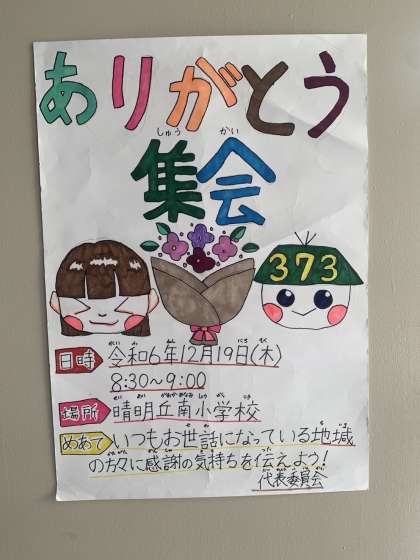 ありがとう
集会
しゅう かい
373
日時 令和6年12月19日(木)
8:30～9:00
場所 晴明丘南小学校
めあて いつもお世話になっている地域
の方々に感謝の気持ちを伝えよう!
代表委員会